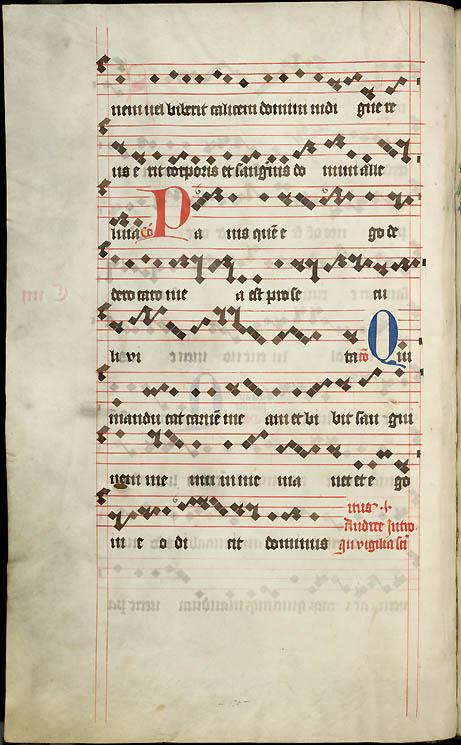 nem uel biberit calicem domini indi gne re
us e rit corporis et sanginis do mini alle
luia Cō Pa nis quē e go de
dero caro me a est pro se cu
li vi ta cō Qui
mandu cat carnē me am et bi bit san gui
nem me um in me ma net et e go
in e o di cit dominus
itus
Andree
In vigilia scī